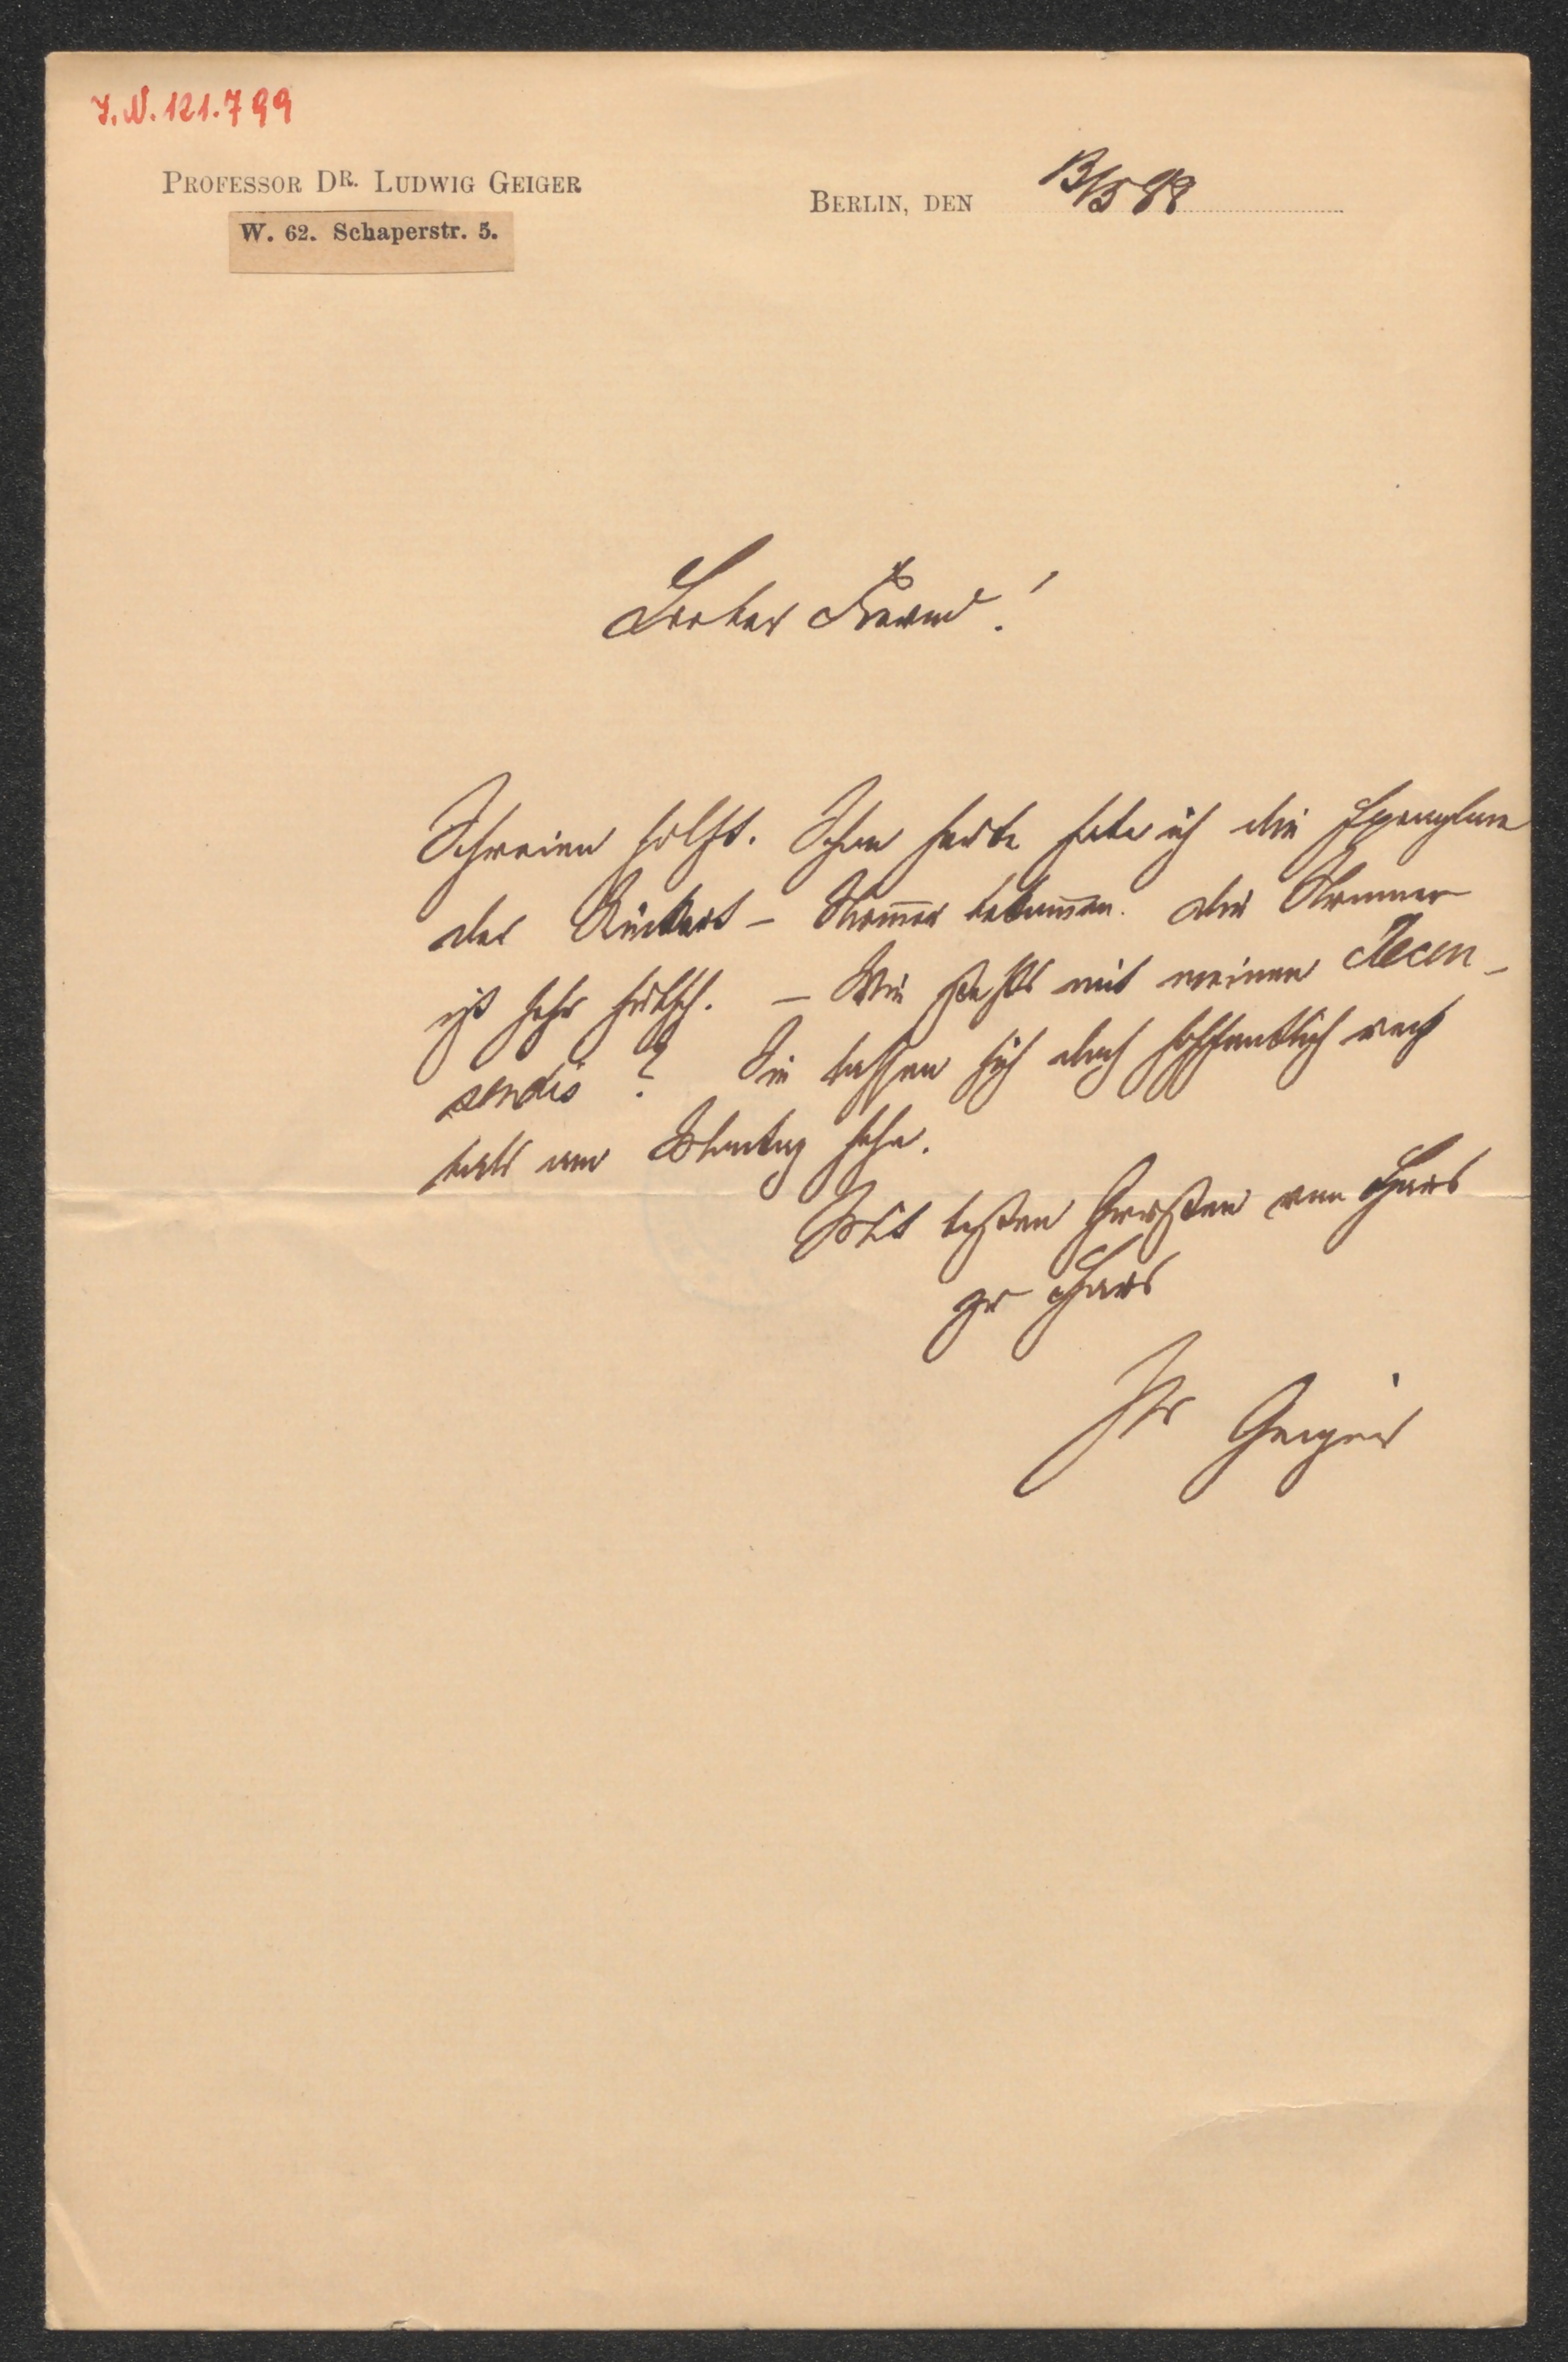 J. N. 121.799
PROFESSOR DR. LUDWIG GEIGER
W. 62. Schaperstr. 5.
BERLIN, DEN 13/5 88
Lieber Freund!
Schreien hilft. Schon heute habe ich die Exemplare
der Rückert-Nummer bekommen. Die Nummer
ist sehr hübsch. – Wie steht's mit meinen Recen-
sendis? Sie lassen sich doch hoffentlich recht
bald am Montag sehn.
Mit besten Grüßen von Haus
zu Haus
Ihr Geiger